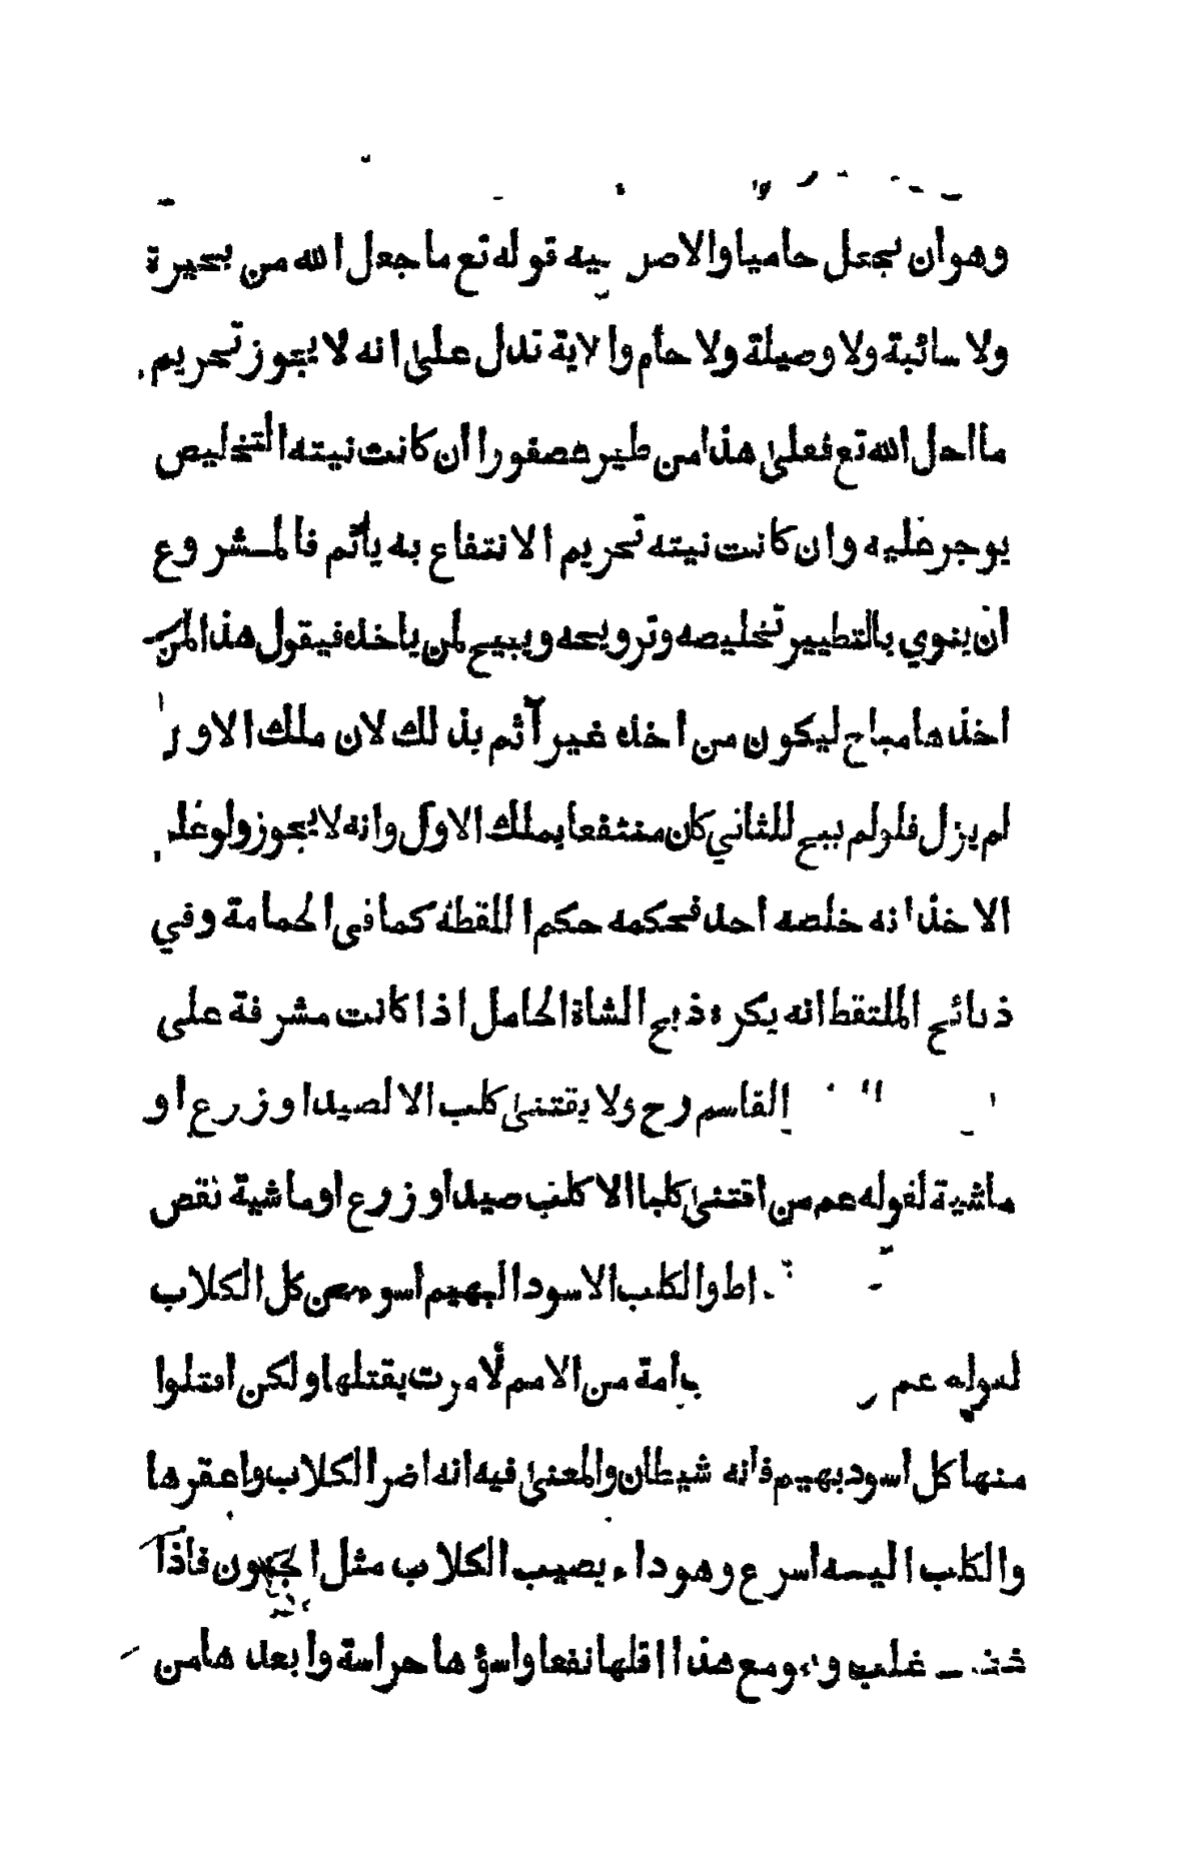 وهو ان يجعل حاميا والاصر فيه قوله تع ما جعل الله من بحيرة
ولا سائبة ولا وصيلة ولا حام والاية تدل على انه لا يجوز تحريم
ما احل الله تع فعلى هذا من طير عصفورا ان كانت نيته التخليص
يوجر عليه وان كانت نيته تحريم الانتفاع به يأثم فالمشروع
ان ينوي بالتطيير تخليصه وترويحه ويبيح لمن ياخذه فيقول هذا لمن
اخذها مباح ليكون من اخذه غير آثم بذلك لان ملك الاول
لم يزل فلو لم يبح للثاني كان منتفعا بملك الاول وانه لا يجوز ولو
الاخذ انه خلصه احد فحكمه حكم اللقطة كما فى الحمامة وفي
ذبائح الملتقط انه يكره ذبح الشاة الحامل اذا كانت مشرفة على
القاسم رح ولا يقتنى كلب الا لصيد او زرع او
ماشية لقوله عم من اقتنى كلبا الا كلب صيد او زرع او ماشية نقص
والكلب الاسود البهيم اسوء من كل الكلاب
لقوله عم امة من الامم لأمرت بقتلها ولكن اقتلوا
منها كل اسود بهيم فانه شيطان والمعنى فيه انه اضر الكلاب واعقرها
والكلب اليه اسرع وهو داء يصيب الكلاب مثل الجنون فاذا
ومع هذا اقلها نفعا واسؤها حراسة وابعدها من